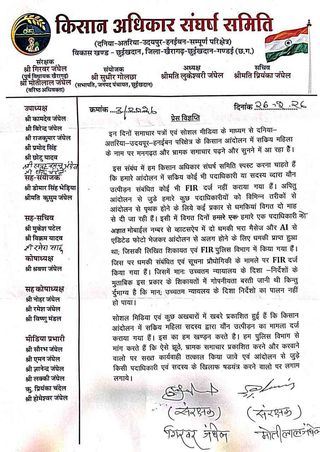 किसान अधिकार संघर्ष समिति
(दनिया-अतरिया-उदयपुर-हनईबन-सम्पूर्ण परिक्षेत्र)
विकास खण्ड - छुईखदान, जिला-खैरागढ़-छुईखदान-गण्डई (छ.ग.)
संरक्षक
श्री गिरवर जंघेल
(पूर्व विधायक खैरागढ़)
श्री मोतीलाल जंघेल
(वरिष्ठ अधिवक्ता)
संयोजक
श्री सुधीर गोलछा
(सभापति, जनपद पंचायत, छुईखदान)
अध्यक्ष
श्रीमति लुकेश्वरी जंघेल
सचिव
श्रीमति प्रियंका जंघेल
क्रमांक 3/2026
दिनांक 26-2-26
प्रेस विज्ञप्ति
उपाध्यक्ष
श्री कामदेव जंघेल
श्री बिरेन्द्र जंघेल
श्री राजकुमार जंघेल
श्री प्रमोद सिंह
श्री छोटू यादव
सह-संयोजक
श्री डोमार सिंह भेड़िया
श्रीमति कुसुम जंघेल
सह-सचिव
श्री मुकेश पटेल
श्री विक्रम यादव
श्री रमेश साहू
कोषाध्यक्ष
श्री श्रवण जंघेल
सह कोषाध्यक्ष
श्री नोहर जंघेल
श्री रमेश जंघेल
श्री विष्णु मंडल
मीडिया प्रभारी
श्री सौरभ जंघेल
श्री एमन जंघेल
श्री ज्ञानेन्द्र जंघेल
श्री लक्की जंघेल
कु. प्रियंका चंदेल
श्री होमेश्वर जंघेल
इन दिनों समाचार पत्रों एवं सोशल मिडिया के माध्यम से दनिया-
अतरिया-उदयपुर-हनईबन परिक्षेत्र के किसान आन्दोलन में सक्रिय महिला
के नाम पर मनगढ़त और भ्रामक समाचार पढ़ने और सुनने में आ रहा हैं।
इस संबंध में हम किसान अधिकार संघर्ष समिति स्पष्ट करना चाहते हैं
कि हमारे आंदोलन में सक्रिय कोई भी पदाधिकारी या सदस्य व्दारा यौन
उत्पीड़न संबंधित कोई भी FIR दर्ज नहीं कराया गया हैं। अपितु
आंदोलन से जुड़े हमारे कुछ पदाधिकारीयों को विभिन्न तरीकों से
आंदोलन से पृथक होने के लिये कई प्रकार से धमकियां विगत दो माह
से दी जा रही हैं। इसी में विगत दोनों हमारे एक पदाधिकारी को
अज्ञात मोबाईल नम्बर से व्हाटसेप में दो धमकी भरा मैसैज और AI से
एडिटेड फोटो भेजकर आंदोलन से अलग होने के लिए धमकी प्राप्त हुआ
था; जिसकी लिखित शिकायत एवं FIR पुलिस विभाग में किया गया हैं।
जिस पर धमकी संबंधित एवं सूचना प्रौद्योगिकी के मामले पर FIR दर्ज
किया गया हैं। जिसमें मानः उच्चतम न्यायालय के दिशा -निर्देशों के
मुताबिक इस प्रकार के शिकायतों में गोपनीयता बरती जानी थी किन्तु
दुर्भाग्य है कि मान; उच्चतम न्यायालय के दिशा निर्देशों का पालन नहीं
हो पाया।
सोशल मिडिया एवं कुछ अखबारों में खबरें प्रकाशित हुई हैं कि किसान
आंदोलन में सक्रिय महिला सदस्य द्वारा यौन उत्पीड़न का मामला दर्ज
कराया गया हैं। इस का हम खण्डन करते है। हम पुलिस विभाग से
मांग करते हैं कि ऐसे झूठे, भ्रामक समाचार प्रकाशित करने और करवाने
वालो पर सख्त कार्यवाही तत्काल किया जावे एवं आन्दोलन से जुड़े
किसी पदाधिकारी एवं सदस्य के खिलाफ षडयंत्र करने वालो पर लगाम
लगाये।
(संरक्षक)
गिरवर जंघेल
(संरक्षक)
मोतीलाल जंघेल